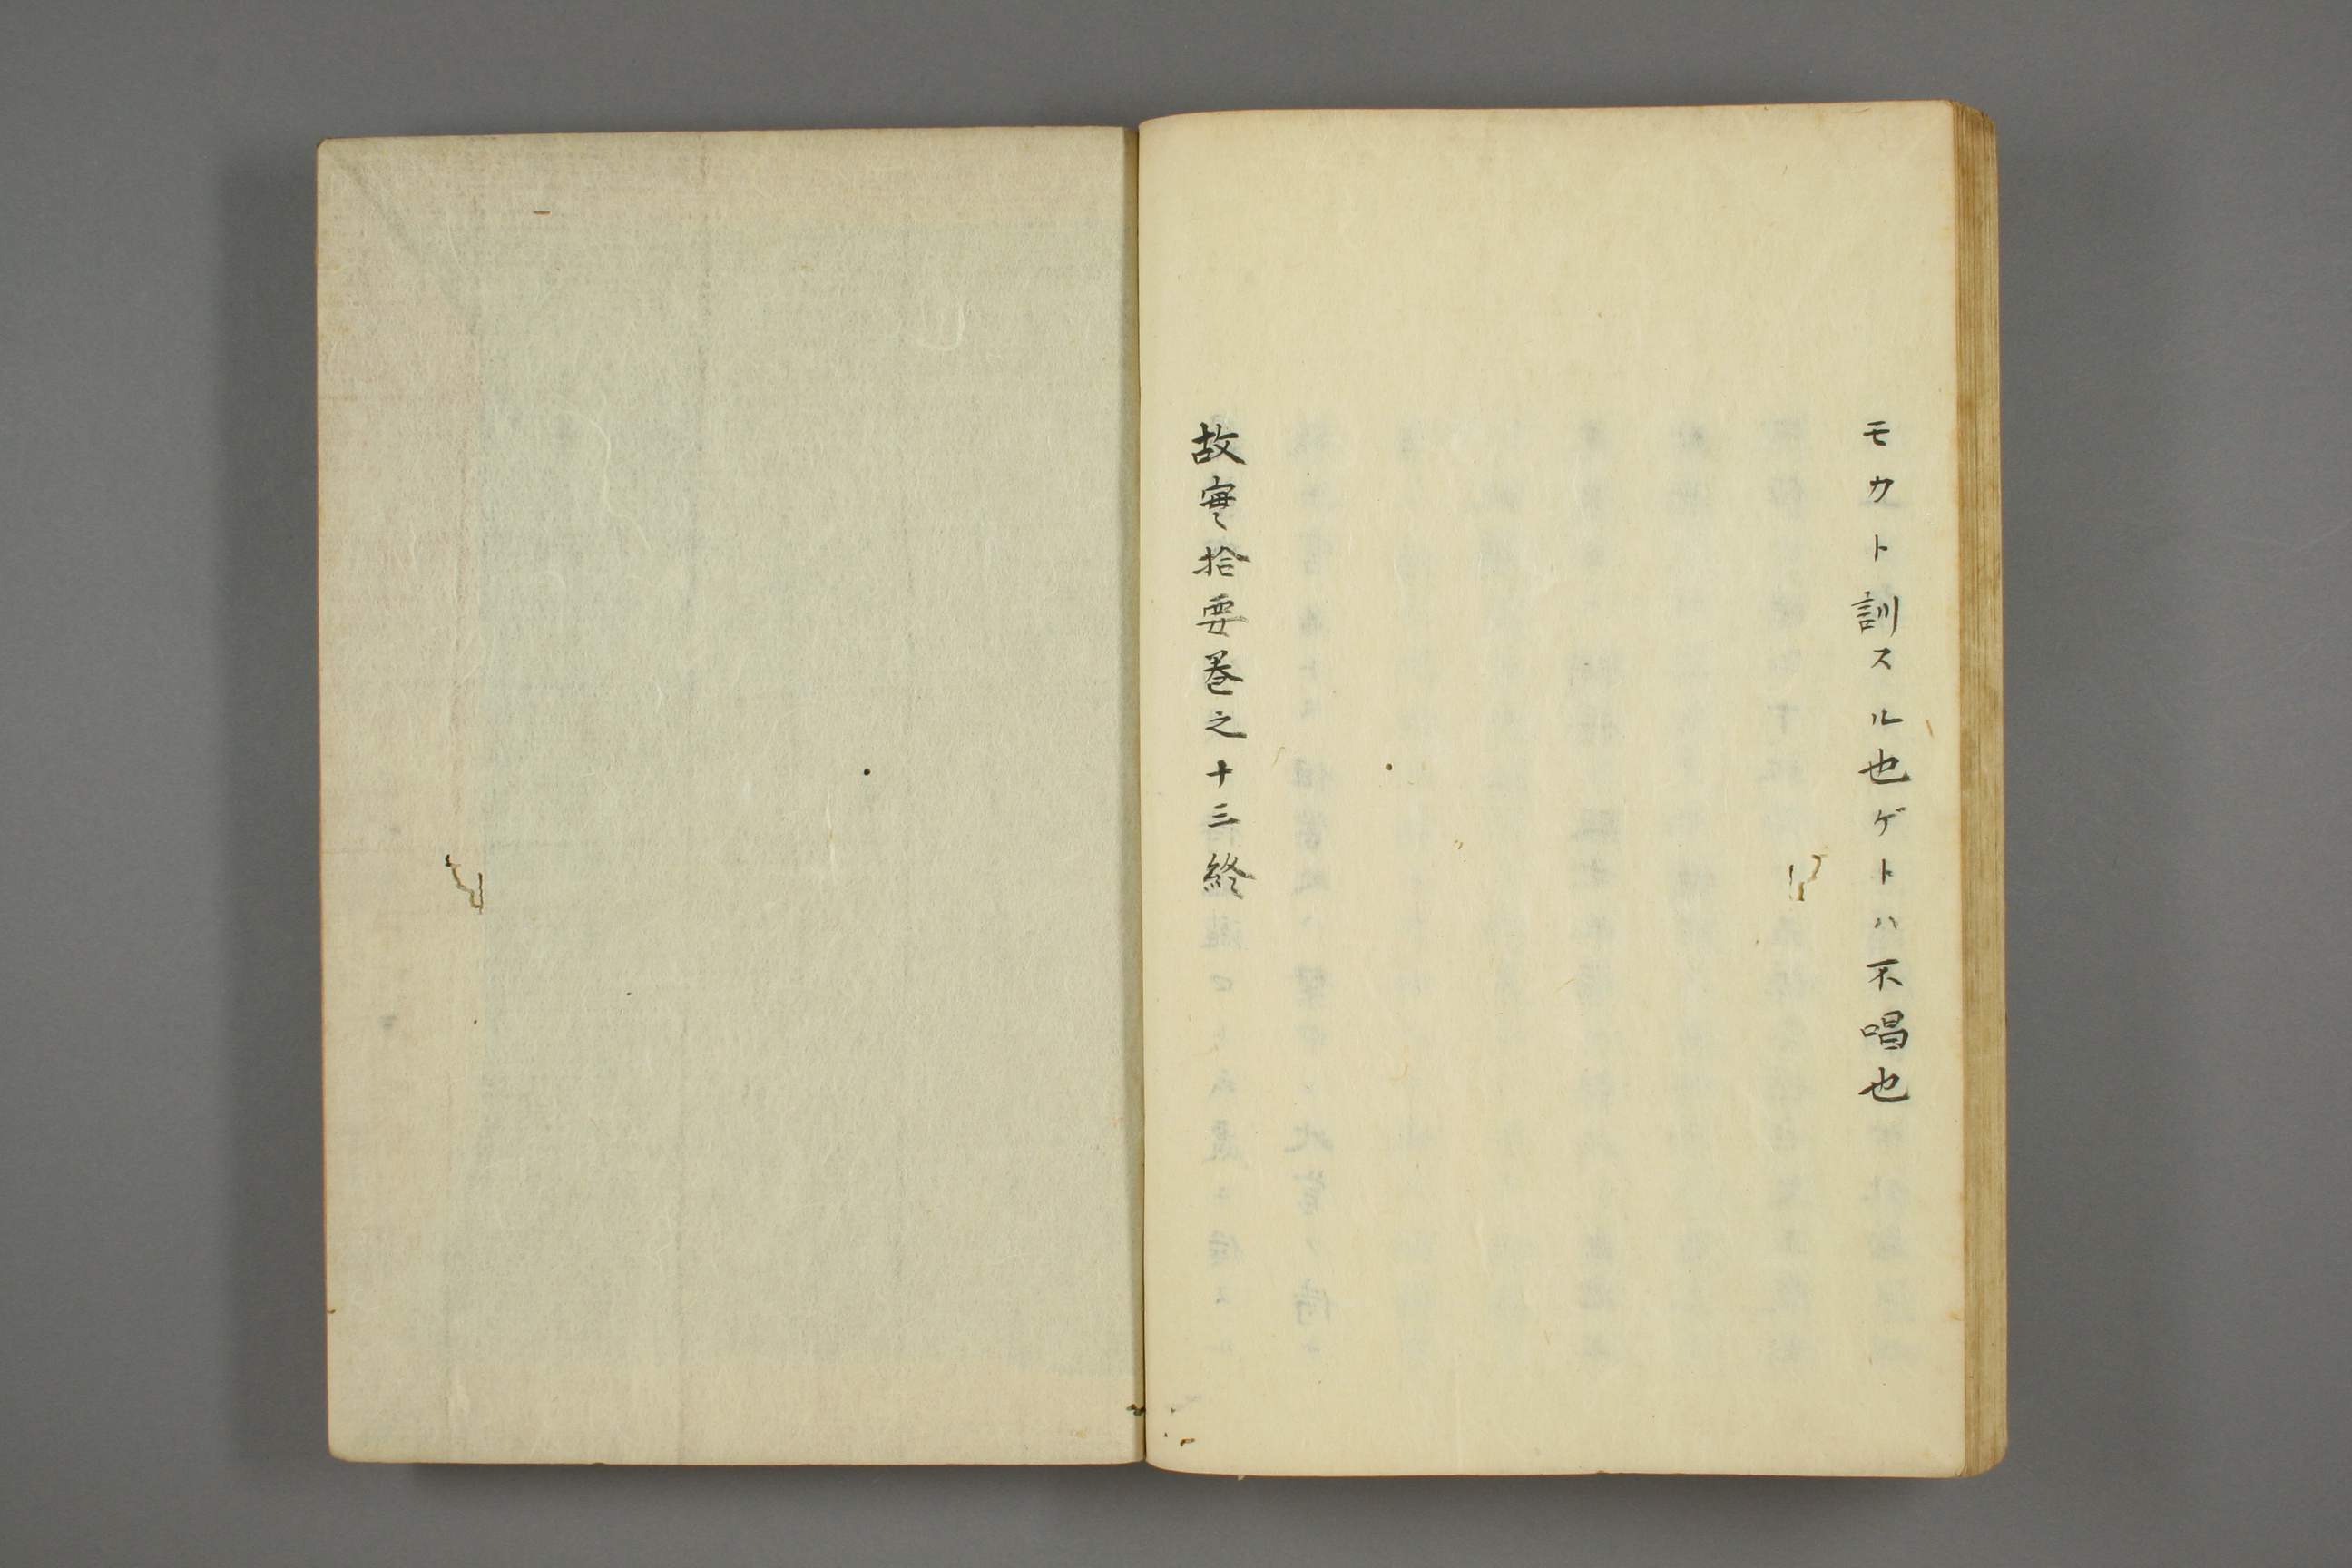 モカト訓スル也ゲトハ不唱也
故実拾要巻之十三終